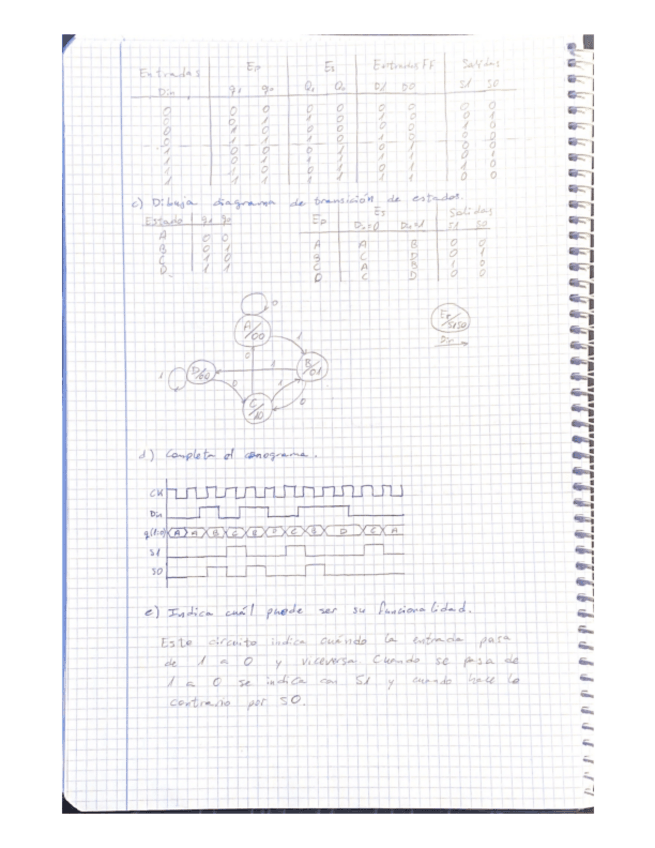 Entradas Ep Es Entradas FF Salidas
Din q1 q0 Q1 Q0 D1 D0 S1 S0
0 0 0 0 0 0 0 0 0
0 0 1 1 0 1 0 0 1
0 1 0 0 0 0 0 1 0
0 1 1 1 0 1 0 0 0
1 0 0 0 1 0 1 0 0
1 0 1 1 1 1 1 0 1
1 1 0 0 1 0 1 1 0
1 1 1 1 1 1 1 0 0
c) Dibuja diagrama de transición de estados.
Estado q1 q0 Ep Es Salidas
Din=0 Din=1 S1 S0
A 0 0 A A B 0 0
B 0 1 B C D 0 1
C 1 0 C A B 1 0
D 1 1 D C D 0 0
0
A/00
Ep/S1S0
0 1
Din
1 D/00 1 B/01
0 1 0
C/10
d) Completa el cronograma.
CK
Din
q(1:0) A A B C B D C B D C A
S1
S0
e) Indica cuál puede ser su funcionalidad.
Este circuito indica cuándo la entrada pasa
de 1 a 0 y viceversa. Cuando se pasa de
1 a 0 se indica con S1 y cuando hace lo
contrario por S0.